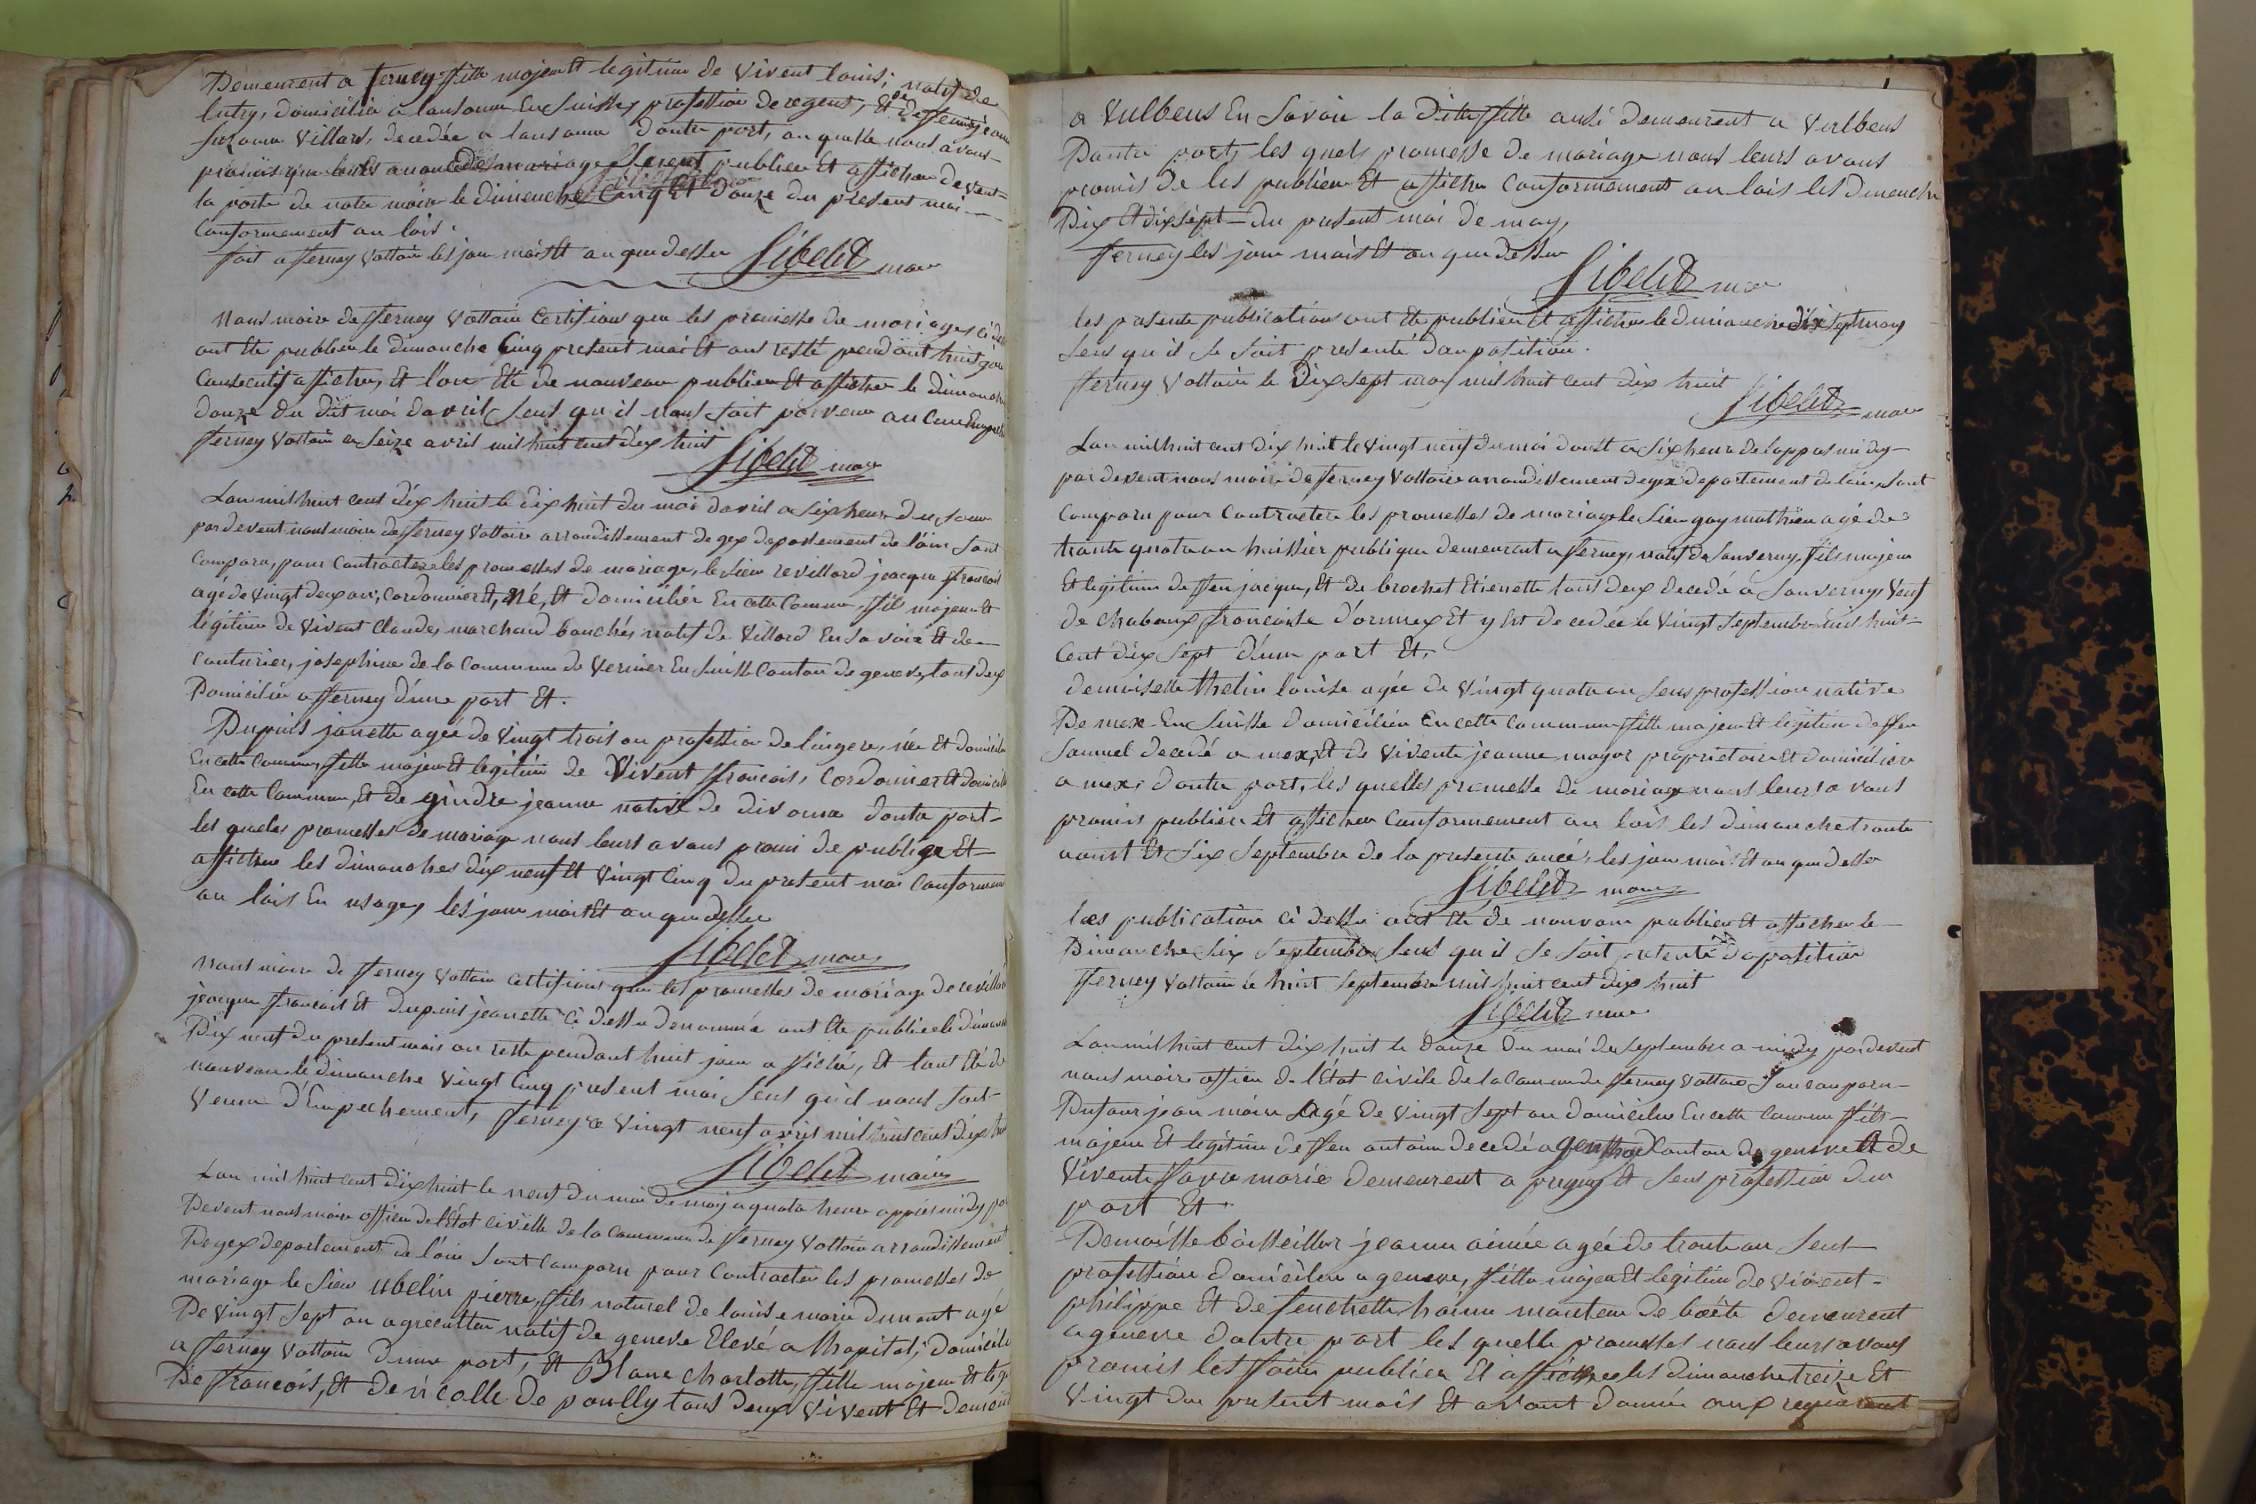 Demeurent a ferney fille majeur Et legitime de vivent louis, natif de
lutry, domicilié a lausanne En Suisse, profession de regent, Et de feu jeanne
Suzanne Villard, decedée a lausanne dautre port, au quelle nous avons
promis que leurs anonce de mariage serent publier Et afficher devent
la porte de notre mairie le dimenche Cinq Et douze du present moi
Conformement au lois.
fait a ferney Voltaire les jour mois Et an que dessu Sibelet mair
Nous maire de fferney Voltaire Certifions que les promesse de mariages ci de
ont Ete publier le dimanche Cinq present moi Et ons resté pendant huit jour
Consecutif afficher, Et l'on Eté de nouveau publier Et afficher le dimanche
douze du dit moi davril, Sens qu il nous Soit parvenu aucun Empeche
fferney Voltaire ce Seize avril mil huit cent dix huit
Sibelet mair
Lan mil huit cent dix huit le dix huit du moi davril a Six heure du Soir
par devent nous maire de fferney Voltaire arrondissement de gex departement de l'ain Sont
Comparu, pour Contracter les promesses de mariage, le Sieur revillard jacque francois
agé de vingt deux an, Cordonnier Et, Né, Et domicilier En cette Commune, ffils majeur Et
légitime de vivent Claude, marchand bouché, natif de Villard En Savoie Et de
Couturier, josephine de la Commune de Vernier En Suisse Canton de geneve, tous deux
Domicilié a fferney d'une port Et.
Dupuis janette agée de vingt trois an profession de lingere, née Et domicile
En cette Commune, fille majeur Et legitime de Vivent ffrancois, Cordonnier Et domicile
En cette Commune, Et de gindre jeanne native de divonne dautre port
les queles promesses de mariage nous leurs avons promi de publier Et
afficher les dimanches dix neuf Et vingt Cinq du present moi Conformem
au lois En usage, les jour mois Et an que dessu
Sibelet mair
Nous maire de fferney Voltaire certifions que les promesses de mariage de revillar
jacque francois Et dupuis jeanette ci dessu denommée ont Ete publié le diman
Dix neuf du present mois on reste pendant huit jour affiché, Et lont Eté de
nouveau le dimanche vingt Cinq present moi Sens qu'il nous Soit
Venu d'Empechement, fferney ce vingt neuf avril mil huit cent dix h
Sibelet maire
Lan mil huit cent dix huit le neuf du moi de may a quatre heure apprès midy par
Devent nous maire officier de l'Etat civille de la Commune de fferney Voltaire arrondissement
De gex departement de l'ain Sont Comparu pour Contracter les promesses de
mariage le Sieur ubelin pierre, ffils naturel de louise marie dunant agé
De vingt Sept an agreculteur natif de geneve Elevé a lhopital, domicilie
a fferney Voltaire dune port, Et Blanc charlotte, fille majeur Et legi
De francois, Et de nicolle de poully tous deux Vivent Et demeure
a Vulbens En Savoie la dite fille ausi demeurent a Vulbens
Dautre port, les quels promesse de mariage nous leurs avons
promis de les publier Et afficher Conformement au lois les dimenche
Dix Et dix Sept du present moi de may,
fferney les jour mois Et an que dessu
Sibelet mair
les presente publication ont Ete publier Et afficher le dimanche dix Sept may
Sens qu il Se Soit presenté doposition.
fferney Voltaire le Dix Sept may mil huit cent dix huit
Sibelet mair
Lan mil huit cent dix huit le vingt neuf du moi doust a Six heure de lappres midy
par devent nous maire de fferney Voltaire arrondissement de gex departement de l'ain, Sont
Comparu pour Contracter les promesses de mariage le Sieur gay mathieu agé de
trante quatre an huissier publique demeurent a fferney, natif de Sauverny, ffils majeur
Et legitime de ffeu jacque, Et de brochet Etienette tous deux decedé a Sauverny, Veuf
de Chabaux francoise d'ornex Et y Est decedée le vingt Septembre mil huit
Cent dix Sept d'une port Et.
demoiselle thelin louise agée de vingt quatre an Sens profession native
De mex En Suisse domiciliée En cette Commune, fille majeur Et legitime de ffeu
Samuel decedé a mex, Et de vivente jeanne mayor proprietaire Et domicilier
a mex, dautre port, les quelles promesse de mariage nous leurs avons
promis publier Et afficher Conformement au lois les dimanche trante
aoust Et Six Septembre de la presente anée, les jour mois Et an que dessu
Sibelet maire
les publication ci dessu ont Ete de nouveau publier Et afficher le
Dimanche Six Septembre Sens qu il Se Soit presenté doposition
fferney Voltaire le huit Septembre mil huit cent dix huit
Sibelet mair
Lan mil huit cent dix huit le douze du moi de Septembre a midy par devent
nous maire officier de l'Etat civile de la Commune de fferney Voltaire Son comparu
Dufour jean maire agé de vingt Sept an domicilier En cette Commune ffils
majeur Et legitime de ffeu antoine decedé a Canton de geneve Et de
Vivente marie demeurent a Et Sens profession dun
port Et.
Demoiselle jeanne aimée agée de trante an Sens
profession domicilier a geneve, fille majeur Et legitime de vivent
philippe Et de monteur de boëte demeurent
a geneve dautre port les quelle promesses nous leurs avons
promis les ffaire publier Et afficher les dimanche treize Et
Vingt du present mois Et avons donnée